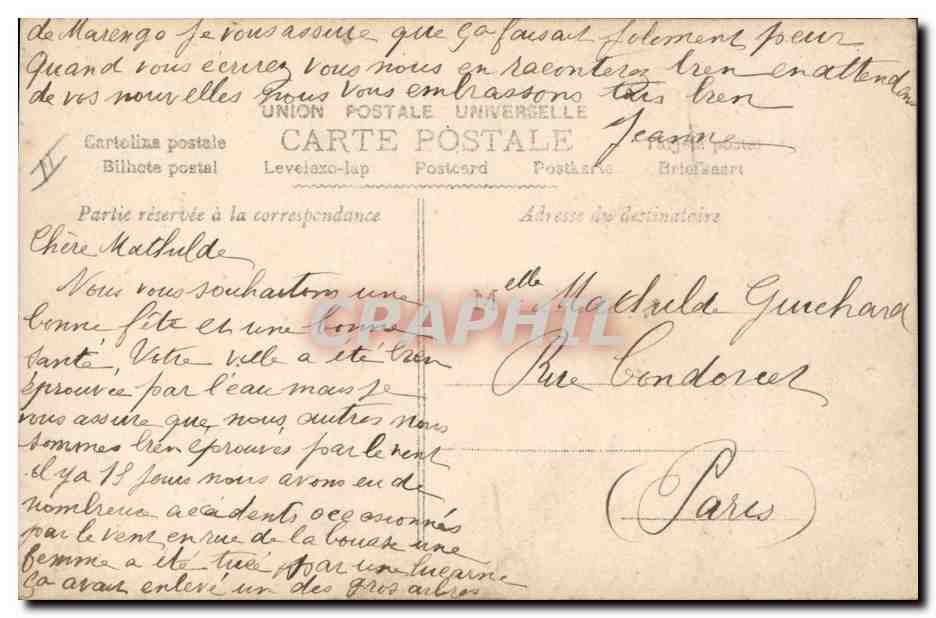 de Marengo je vous assure que ça faisait joloment peur
Quand vous écrirez vous nous en raconterez bien en attendant
de vos nouvelles nous vous embrassons tous bien
Jeanne
UNION POSTALE UNIVERSELLE
CARTE POSTALE
Cartolina postale
Bilhete postal Levelezo-lap Postcard Postkarte Briefkaart
II
Partie réservée à la correspondance
Adresse du destinataire
Chère Mathulde
Nous vous souhaitons une
bonne fête et une bonne
santé, Votre ville a été bien
éprouvée par l'eau mais je
vous assure que nous autres nous
sommes bien éprouvés par le vent
il y a 15 jours nous avons eu de
nombreux accidents occasionnés
par le vent en rue de la une
femme a été tuée par une lucarne
ça avait enlevé un des gros arbres
Melle Mathulde Guichard
Rue Condorcet
(Paris)
CPAPHIL